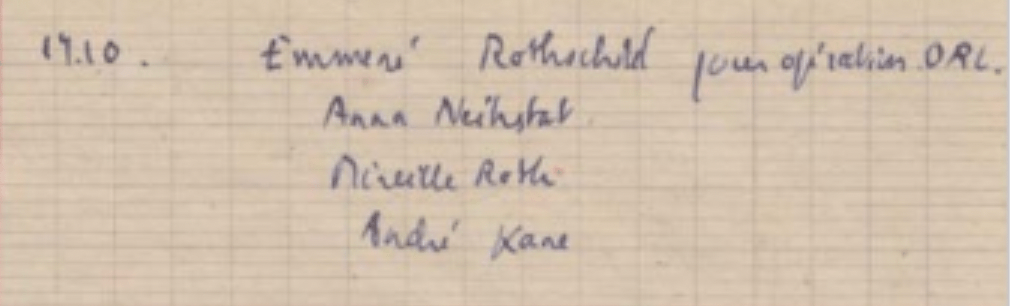 17.10. Emmené Rothschild pour opération ORL.
Anna Neihstat
Mireille Roth
André Kane